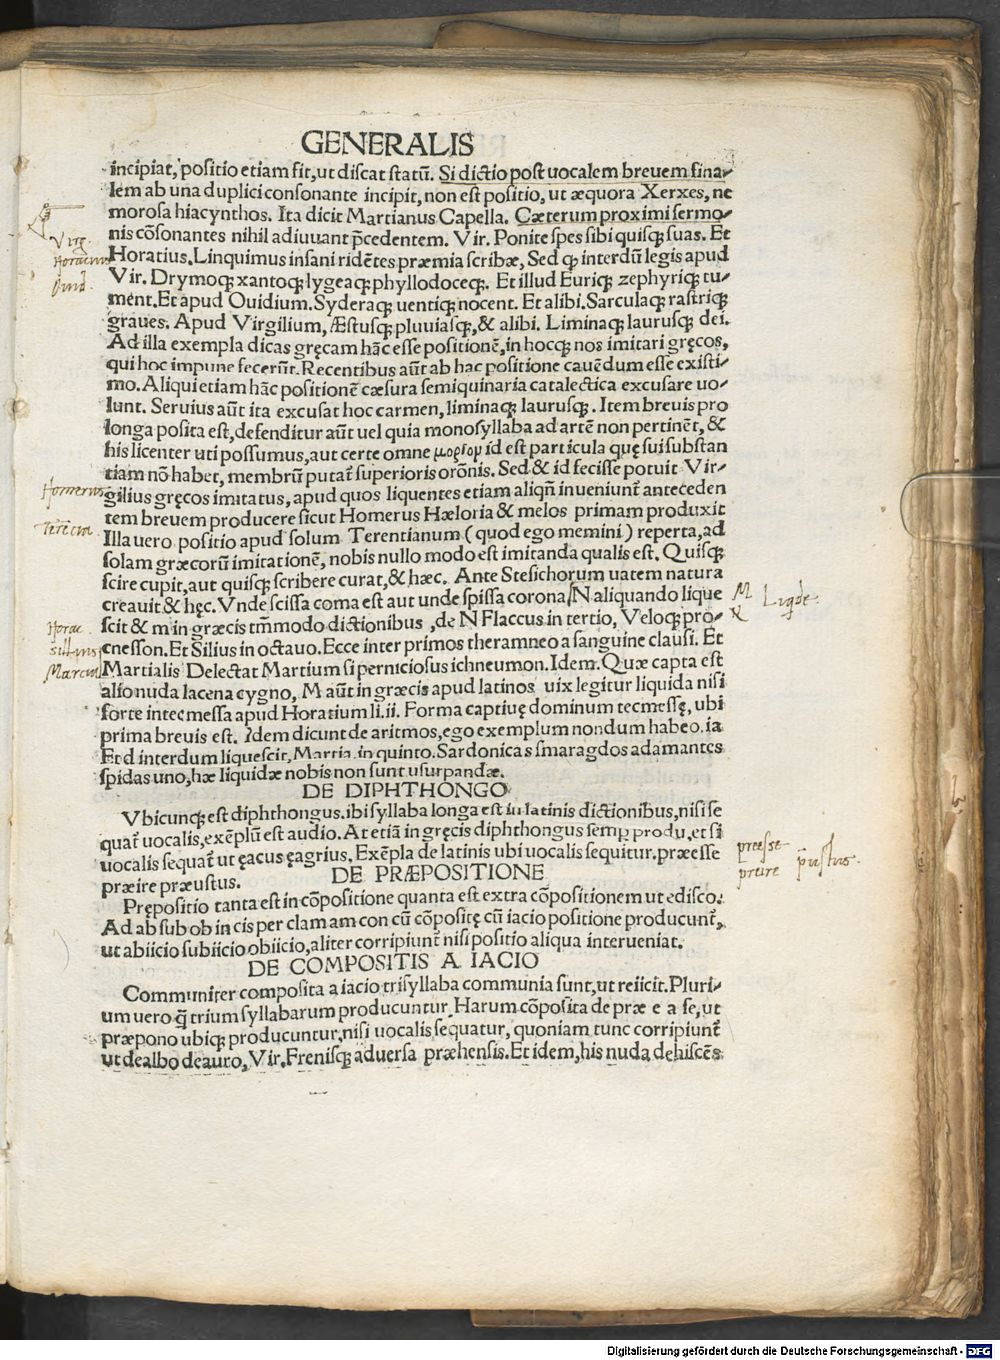 GENERALIS
incipiat, positio etiam fit, ut discat statū. Si dictio post uocalem breuem fina-
lem ab una duplici consonante incipit, non est positio, ut æquora Xerxes, ne
morosa hiacynthos. Ita dicit Martianus Capella. Cæterum proximi sermo-
nis cōsonantes nihil adiuuant p̄cedentem. Vir. Ponite spes sibi quisqꝫ suas. Et
Virg.
Horatius. Linquimus insani ridētes præmia scribæ, Sed ꝙ interdū legis apud
Horacius
Vir. Drymoqꝫ xantoqꝫ lygeaqꝫ phyllodoceqꝫ. Et illud Euriqꝫ zephyriqꝫ tu-
Ouid.
ment. Et apud Ouidium. Syderaqꝫ uentiqꝫ nocent. Et alibi. Sarculaqꝫ rastriqꝫ
graues. Apud Virgilium, Æstusqꝫ pluuiasqꝫ, & alibi. Liminaqꝫ laurusqꝫ dei.
Ad illa exempla dicas gręcam hāc esse positionē, in hocqꝫ nos imitari gręcos,
qui hoc impune fecerūt. Recentibus aūt ab hac positione cauēdum esse existi-
mo. Aliqui etiam hāc positionē cæsura semiquinaria catalectica excusare uo-
lunt. Seruius aūt ita excusat hoc carmen, liminaqꝫ laurusqꝫ. Item breuis pro
longa posita est, defenditur aūt uel quia monosyllaba ad artē non pertinēt, &
his licenter uti possumus, aut certe omne μοριομ id est particula quę sui substan
tiam nō habet, membrū putat̄ superioris orōnis. Sed & id fecisse potuit Vir-
Homerus
gilius gręcos imitatus, apud quos liquentes etiam aliqñ inueniunt̄ anteceden
tem breuem producere sicut Homerus Hæloria & melos primam produxit
Terēcia
Illa uero positio apud solum Terentianum (quod ego memini) reperta, ad
solam græcorū imitationē, nobis nullo modo est imitanda qualis est. Quisqꝫ
scire cupit, aut quisqꝫ scribere curat, & hæc. Ante Stesichorum uatem natura
creauit & hęc. Vnde scissa coma est aut unde spissa corona, N aliquando lique
M
N
scit & m in græcis tm̄modo dictionibus, de N Flaccus in tertio, Veloqꝫ pro-
Horac.
cnesson. Et Silius in octauo. Ecce inter primos theramneo a sanguine clausi. Et
sillius
Martialis Delectat Martium si perniciosus ichneumon. Idem. Quæ capta est
Marcia
alio nuda lacena cygno, M aūt in græcis apud latinos uix legitur liquida nisi
forte intecmessa apud Horatium li. ii. Forma captiuę dominum tecmessę, ubi
prima breuis est. Idem dicunt de aritmos, ego exemplum nondum habeo. ia
Et d interdum liquescit, Martia. in quinto. Sardonicas smaragdos adamantes
spidas uno, hæ liquidæ nobis non sunt usurpandæ.
DE DIPHTHONGO
Vbicunqꝫ est diphthongus. ibi syllaba longa est in latinis dictionibus, nisi se
quat̄ uocalis, exēplū est audio. At etiā in gręcis diphthongus semꝑ produ. et si
uocalis sequat̄ ut ęacus ęagrius. Exēpla de latinis ubi uocalis sequitur. præesse
preesse
præire præustus.
preire p̄ustus.
DE PRÆPOSITIONE
Prępositio tanta est in cōpositione quanta est extra cōpositionem ut edisco.
Ad ab sub ob in cis per clam am con cū cōpositę cū iacio positione producunt̄,
ut abiicio subiicio obiicio, aliter corripiunt̄ nisi positio aliqua interueniat.
DE COMPOSITIS A IACIO
Communiter composita a iacio trisyllaba communia sunt, ut reiicit. Pluri-
um uero q̄ trium syllabarum producuntur. Harum cōposita de præ e a se, ut
præpono ubiqꝫ producuntur, nisi uocalis sequatur, quoniam tunc corripiunt̄
ut dealbo deauro, Vir. Frenisqꝫ aduersa præhensis. Et idem, his nuda dehiscēs
Digitalisierung gefördert durch die Deutsche Forschungsgemeinschaft - DFG